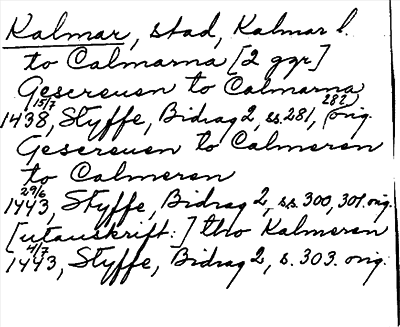 Kalmar, stad, Kalmar l.
to Calmarna [2 ggr]
Gescreuen to Calmarna
15/7 1438, Styffe, Bidrag 2, ss. 281, 282, orig.
Gescreuen to Calmeren
to Calmeren
29/6 1443, Styffe, Bidrag 2, ss. 300, 301. orig.
[utanskrift:] tho Kalmeren
4/7 1443, Styffe, Bidrag 2, s. 303. orig.